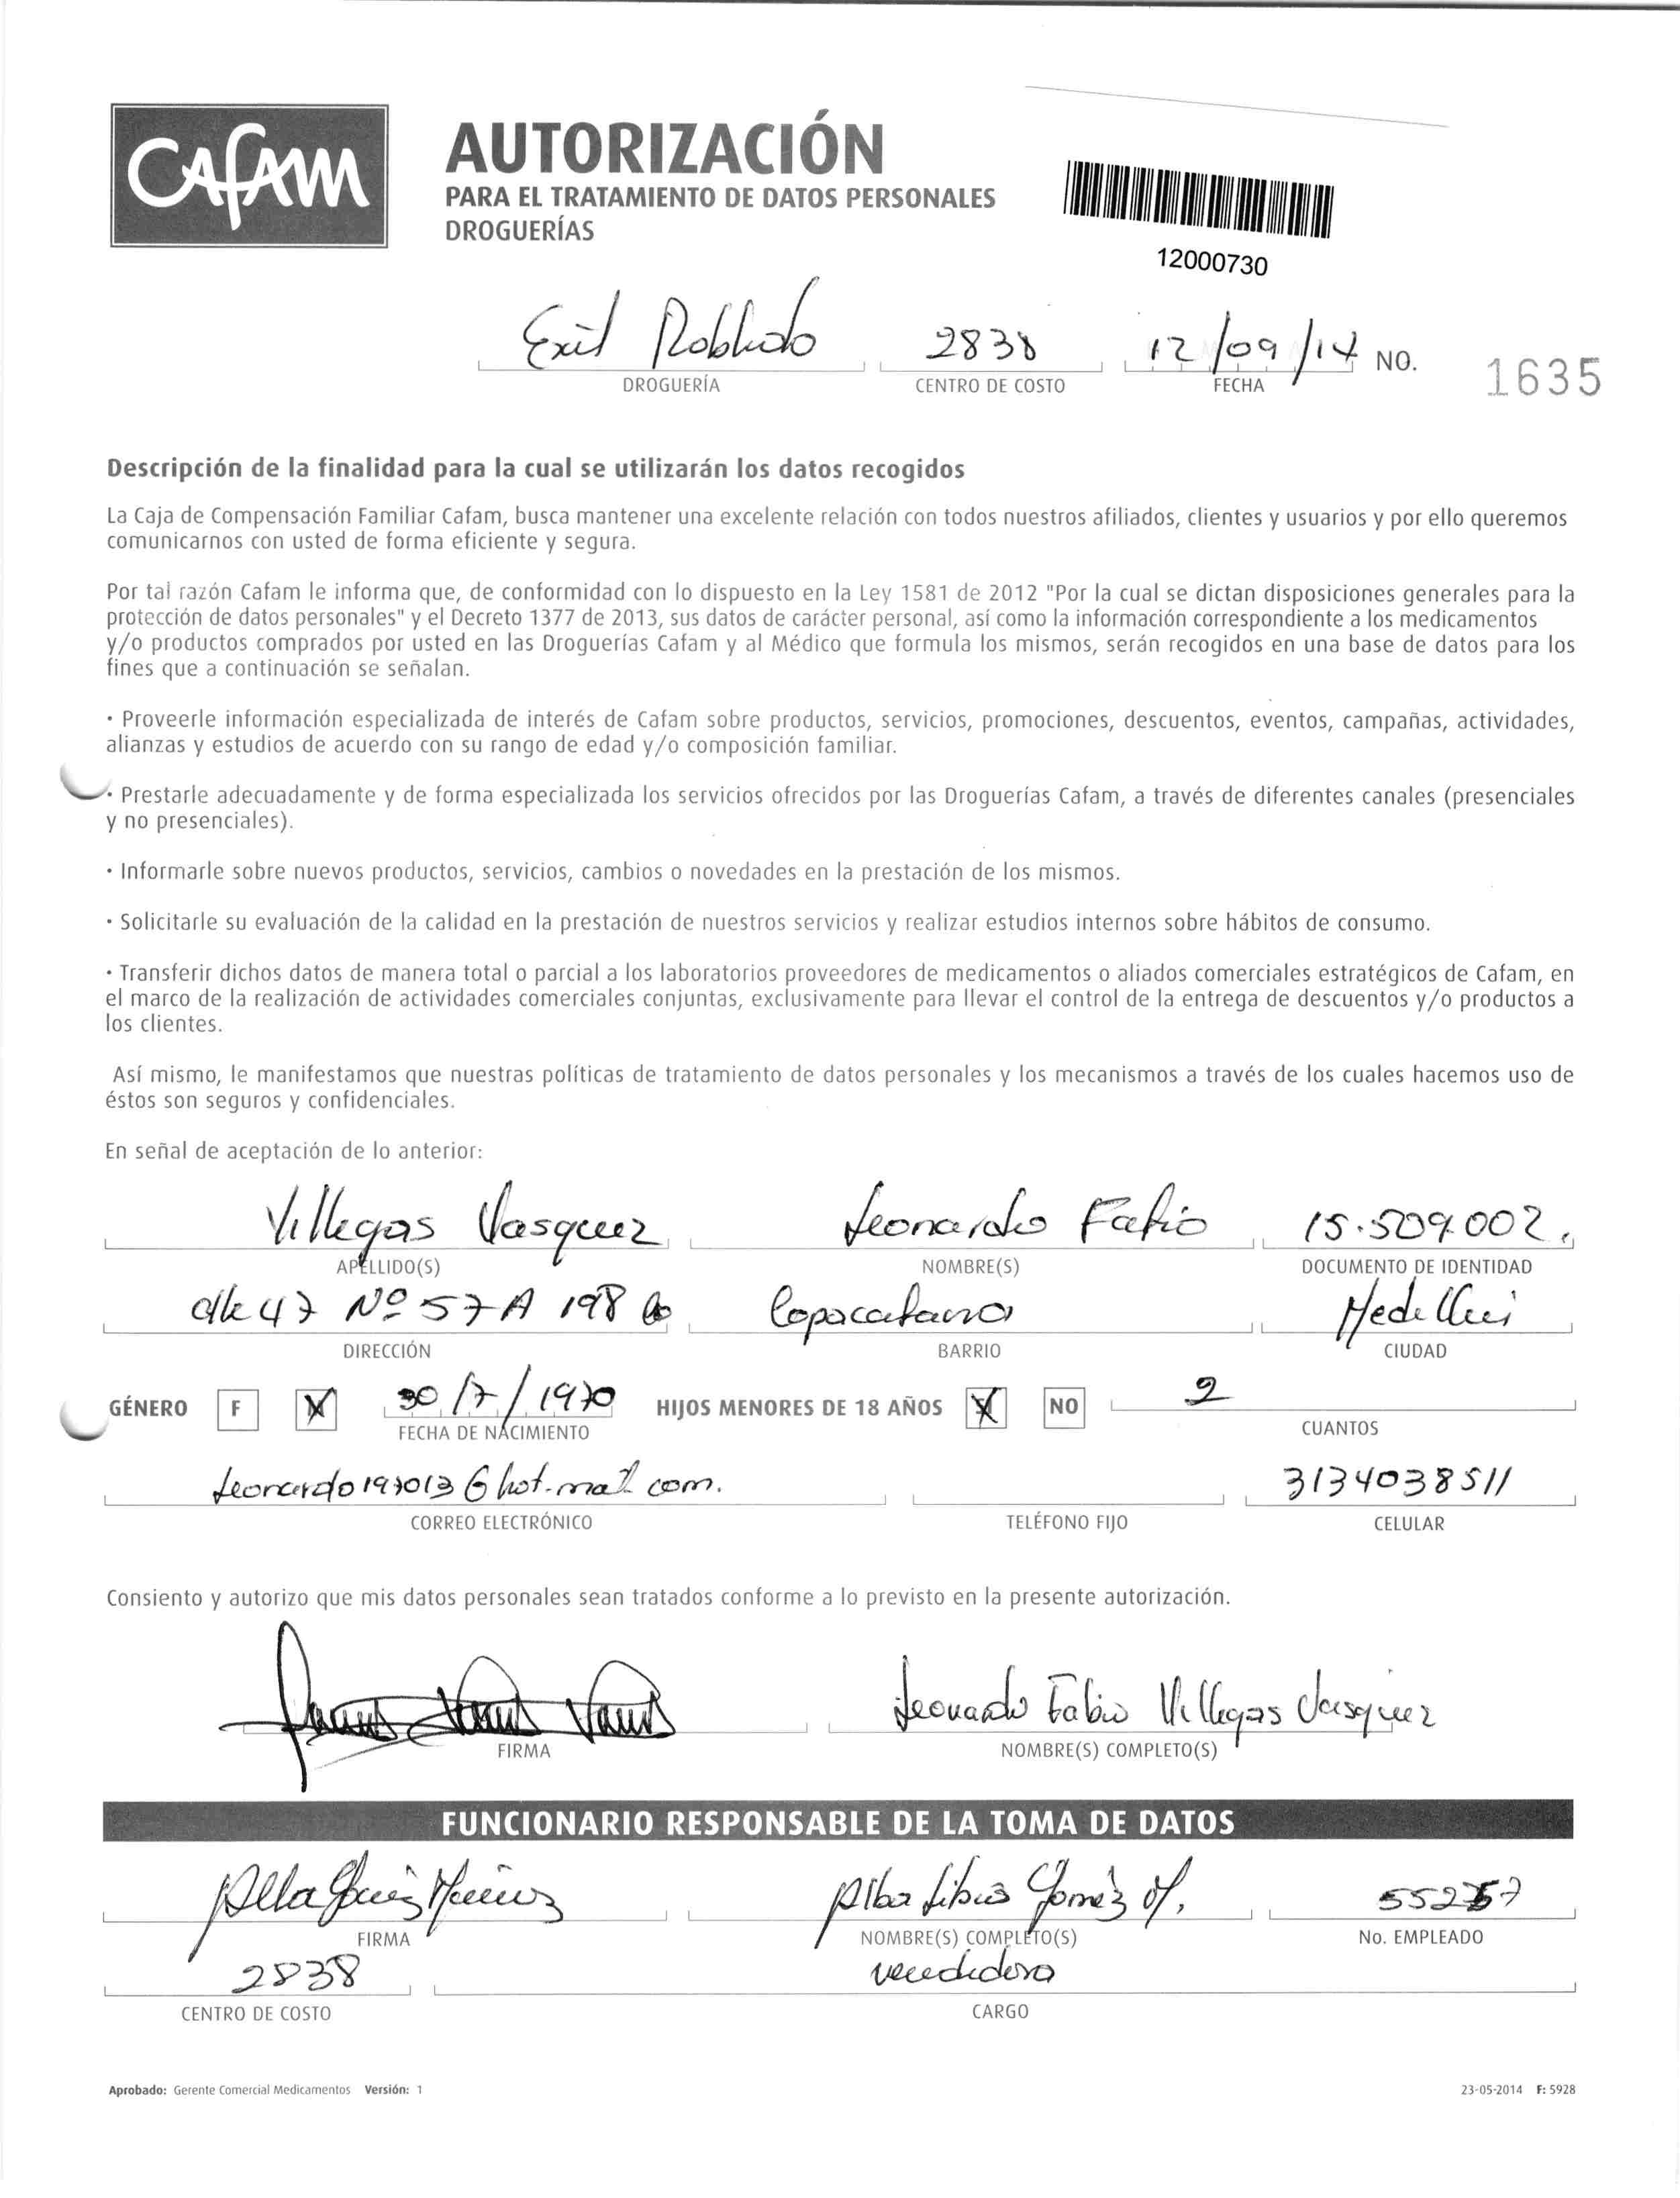 Cafam
AUTORIZACIÓN
PARA EL TRATAMIENTO DE DATOS PERSONALES
DROGUERÍAS
12000730
Exit Robledo 2838 12/09/14 NO. 1635
DROGUERÍA CENTRO DE COSTO FECHA
Descripción de la finalidad para la cual se utilizarán los datos recogidos
La Caja de Compensación Familiar Cafam, busca mantener una excelente relación con todos nuestros afiliados, clientes y usuarios y por ello queremos
comunicarnos con usted de forma eficiente y segura.
Por tal razón Cafam le informa que, de conformidad con lo dispuesto en la Ley 1581 de 2012 "Por la cual se dictan disposiciones generales para la
protección de datos personales" y el Decreto 1377 de 2013, sus datos de carácter personal, así como la información correspondiente a los medicamentos
y/o productos comprados por usted en las Droguerías Cafam y al Médico que formula los mismos, serán recogidos en una base de datos para los
fines que a continuación se señalan.
· Proveerle información especializada de interés de Cafam sobre productos, servicios, promociones, descuentos, eventos, campañas, actividades,
alianzas y estudios de acuerdo con su rango de edad y/o composición familiar.
· Prestarle adecuadamente y de forma especializada los servicios ofrecidos por las Droguerías Cafam, a través de diferentes canales (presenciales
y no presenciales).
· Informarle sobre nuevos productos, servicios, cambios o novedades en la prestación de los mismos.
· Solicitarle su evaluación de la calidad en la prestación de nuestros servicios y realizar estudios internos sobre hábitos de consumo.
· Transferir dichos datos de manera total o parcial a los laboratorios proveedores de medicamentos o aliados comerciales estratégicos de Cafam, en
el marco de la realización de actividades comerciales conjuntas, exclusivamente para llevar el control de la entrega de descuentos y/o productos a
los clientes.
Así mismo, le manifestamos que nuestras políticas de tratamiento de datos personales y los mecanismos a través de los cuales hacemos uso de
éstos son seguros y confidenciales.
En señal de aceptación de lo anterior:
Villegas Vasquez Leonardo Fabio 15.509.002.
APELLIDO(S) NOMBRE(S) DOCUMENTO DE IDENTIDAD
47 Nº 57A 198 Copacabana Medellin
DIRECCIÓN BARRIO CIUDAD
GÉNERO F X 30/7/1970 HIJOS MENORES DE 18 AÑOS X NO 2
FECHA DE NACIMIENTO CUANTOS
Leonardo197013@hot.mail com. 3134038511
CORREO ELECTRÓNICO TELÉFONO FIJO CELULAR
Consiento y autorizo que mis datos personales sean tratados conforme a lo previsto en la presente autorización.
Leonardo Fabio Villegas Vasquez
FIRMA NOMBRE(S) COMPLETO(S)
FUNCIONARIO RESPONSABLE DE LA TOMA DE DATOS
Alba Libia Gomez M.
FIRMA NOMBRE(S) COMPLETO(S) No. EMPLEADO
2838 vendedora
CENTRO DE COSTO CARGO
Aprobado: Gerente Comercial Medicamentos Versión: 1 23-05-2014 F: 5928